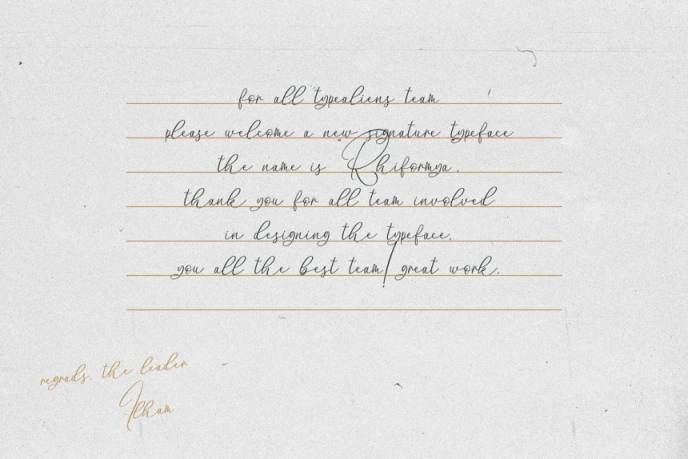 for all typealiens team
please welcome a new signature typeface
the name is Rhiformya.
thank you for all team involved
in designing the typeface.
you all the best team/great work.
regrads. the leader
Ilham